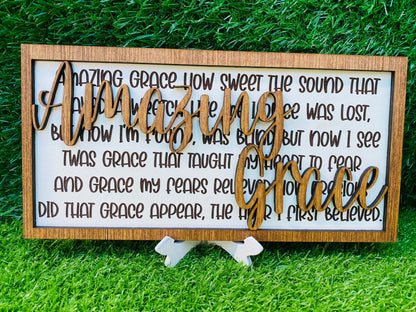 AMAZING GRACE HOW SWEET THE SOUND THAT
Amazing
WRETCH WAS LOST,
BUT NOW I'M FOUND, WAS BLIND BUT NOW I SEE
TWAS GRACE THAT TAUGHT MY HEART TO FEAR
Grace
AND GRACE MY FEARS RELIEVED HOW PRECIOUS
DID THAT GRACE APPEAR, THE HOUR I FIRST BELIEVED.